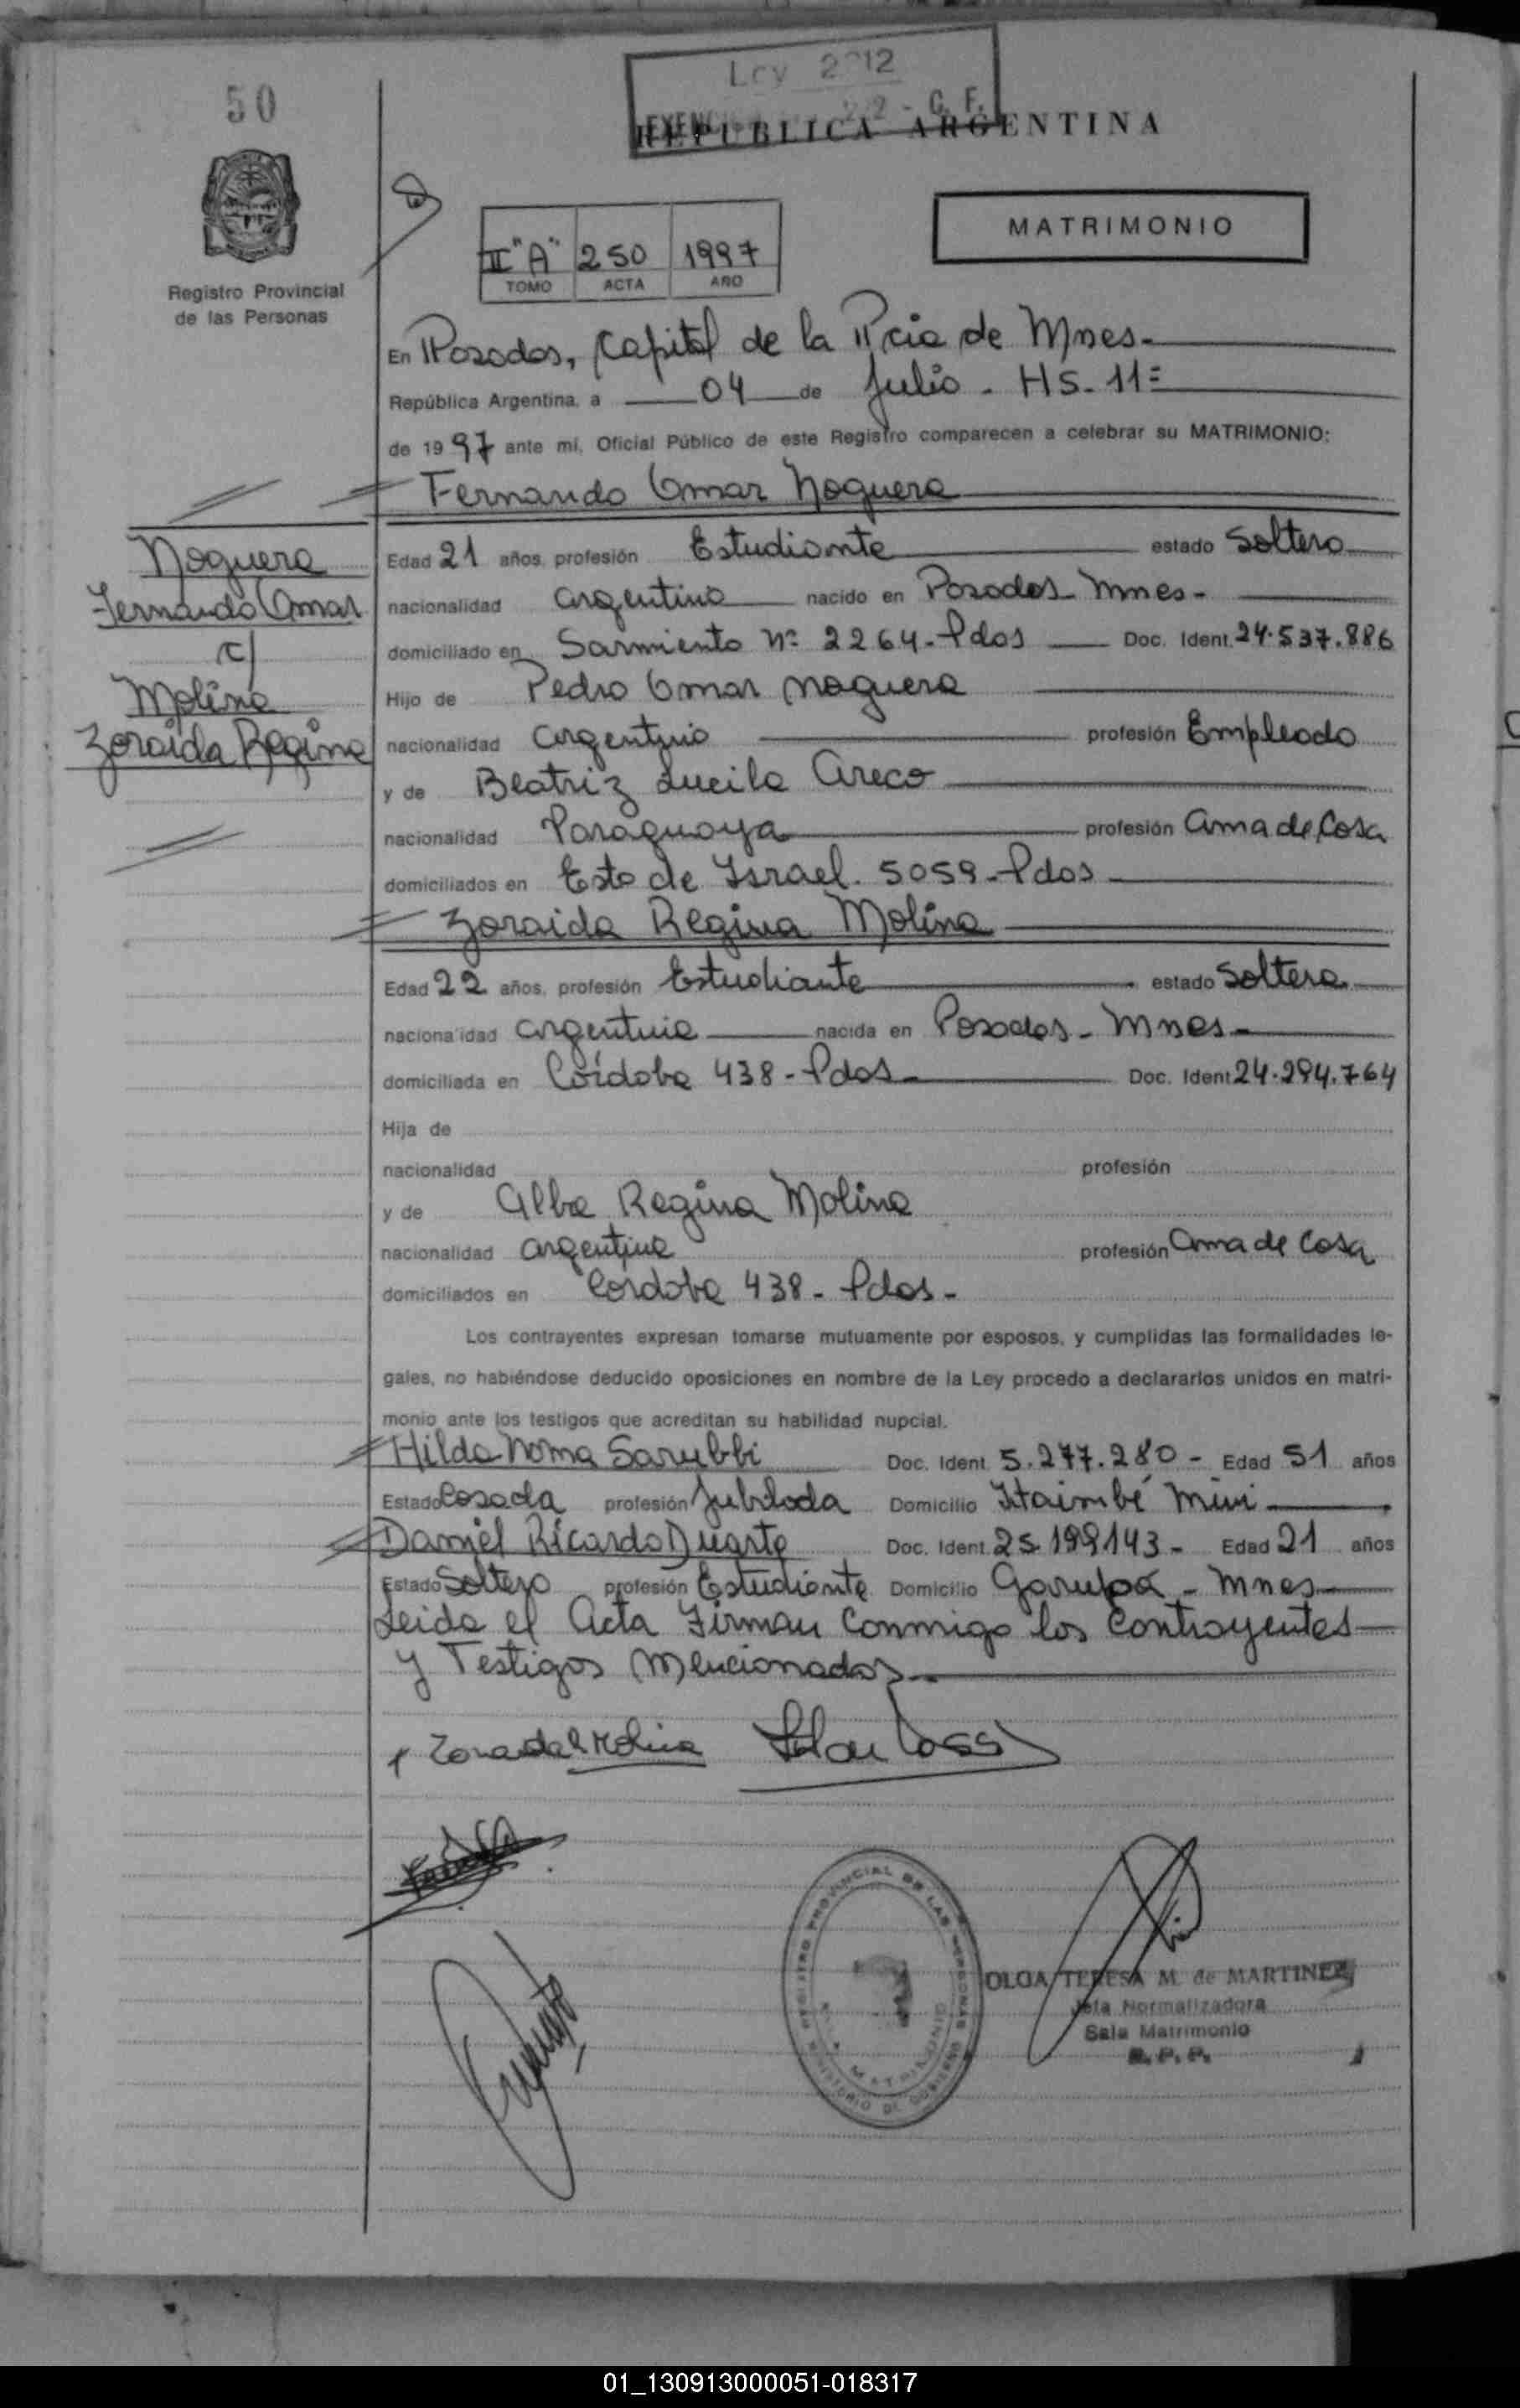 50
Ley 2012
C. F.
REPUBLICA ARGENTINA
MATRIMONIO
II "A" 250 1997
TOMO ACTA AÑO
Registro Provincial
de las Personas
En Posadas, Capital de la Pcia de Mnes.
República Argentina, a 04 de Julio - HS. 11=
de 1997 ante mí, Oficial Público de este Registro comparecen a celebrar su MATRIMONIO:
Fernando Omar Noguera
Noguera
Fernando Omar
c/
Molina
Zoraida Regina
Edad 21 años, profesión Estudiante estado Soltero
nacionalidad argentino nacido en Posadas Mnes-
domiciliado en Sarmiento Nº 2264-Pdas Doc. Ident. 24.537.886
Hijo de Pedro Omar Noguera
nacionalidad argentino profesión Empleado
y de Beatriz Lucila Areco
nacionalidad Paraguaya profesión Ama de Casa
domiciliados en Esto de Israel. 5059-Pdas
Zoraida Regina Molina
Edad 22 años, profesión Estudiante estado Soltera
nacionalidad argentina nacida en Posadas - Mnes-
domiciliada en Córdoba 438-Pdas- Doc. Ident 24.294.764
Hija de
nacionalidad profesión
y de Alba Regina Molina
nacionalidad argentina profesión Ama de Casa
domiciliados en Cordoba 438- Pdas-
Los contrayentes expresan tomarse mutuamente por esposos, y cumplidas las formalidades le-
gales, no habiéndose deducido oposiciones en nombre de la Ley procedo a declararlos unidos en matri-
monio ante los testigos que acreditan su habilidad nupcial.
Hilda Noma Sarubbi Doc. Ident. 5.277.280- Edad 51 años
Estado Casada profesión Jubilada Domicilio Itaimbé Mini
Daniel Ricardo Duarte Doc. Ident. 25.199143- Edad 21 años
Estado Soltero profesión Estudiante Domicilio Garupá - Mnes
Leida el Acta Firman Conmigo los Contrayentes
y Testigos Mencionados
Zoraida R Molina
REGISTRO PROVINCIAL DE LAS PERSONAS
MINISTERIO DE GOBIERNO
SALA MATRIMONIO
OLGA TERESA M. de MARTINEZ
Jefa Normalizadora
Sala Matrimonio
R. P. P.
01_130913000051-018317